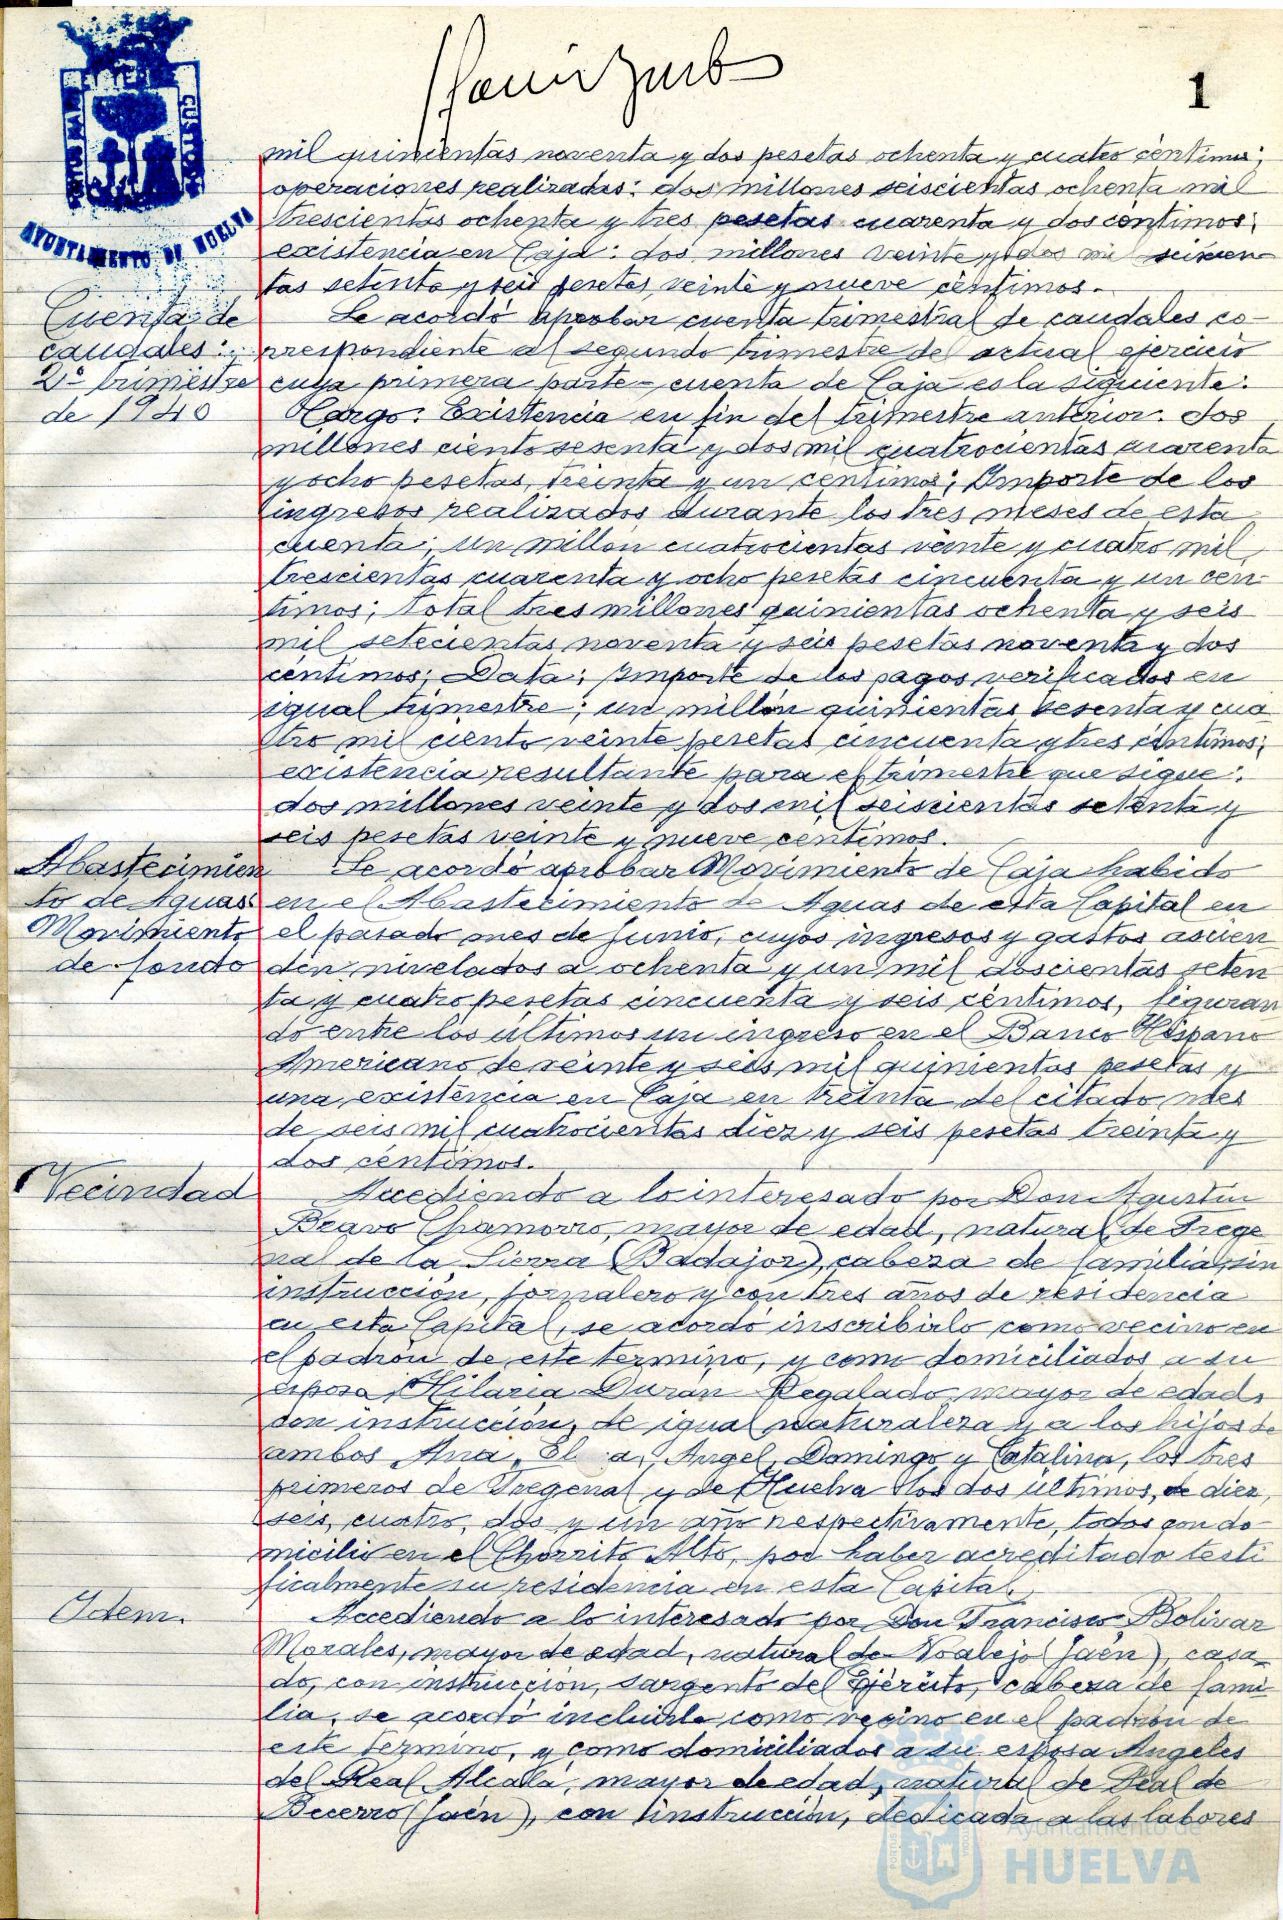 1
PORTUS MARIS
CUSTODIA
AYUNTAMIENTO DE HUELVA
mil quinientas noventa y dos pesetas ochenta y cuatro céntimos;
operaciones realizadas: dos millones seiscientas ochenta mil
trescientas ochenta y tres pesetas cuarenta y dos céntimos;
existencia en Caja: dos millones veinte y dos mil seiscien
tas setenta y seis pesetas, veinte y nueve céntimos.
Cuenta de
caudales:
2º trimestre
de 1940
Se acordó aprobar cuenta trimestral de caudales co-
rrespondiente al segundo trimestre del actual ejercicio
cuya primera parte - cuenta de Caja es la siguiente:
Cargo: Existencia en fin del trimestre anterior: dos
millones ciento sesenta y dos mil cuatrocientas cuarenta
y ocho pesetas, treinta y un centimos; Importe de los
ingresos realizados durante los tres meses de esta
cuenta; un millón cuatrocientas veinte y cuatro mil,
trescientas cuarenta y ocho pesetas cincuenta y un cen-
timos; total tres millones quinientas ochenta y seis
mil setecientas noventa y seis pesetas noventa y dos
céntimos; Data; Importe de los pagos verificados en
igual trimestre; un millón quinientas sesenta y cua-
tro mil ciento veinte pesetas cincuenta y tres céntimos;
existencia resultante para el trimestre que sigue:
dos millones veinte y dos mil seiscientas setenta y
seis pesetas veinte y nueve centimos.
Abastecimien
to de Aguas
Movimiento
de fondo
Se acordó aprobar Movimiento de Caja habido
en el Abastecimiento de Aguas de esta Capital en
el pasado mes de Junio, cuyos ingresos y gastos ascien
den nivelados a ochenta y un mil doscientas seten
ta y cuatro pesetas cincuenta y seis céntimos, figuran
do entre los últimos un ingreso en el Banco Hispano
Americano de veinte y seis mil quinientas pesetas y
una existencia en Caja en treinta del citado mes
de seis mil cuatrocientas diez y seis pesetas treinta y
dos céntimos.
Vecindad
Accediendo a lo interesado por Don Agustín
Bravo Chamorro, mayor de edad, natural de Frege
nal de la Sierra (Badajoz), cabeza de familia, sin
instrucción, jornalero y con tres años de residencia
en esta Capital, se acordó inscribirlo como vecino en
el padrón de este termino, y como domiciliados a su
esposa, Hilaria Durán Regalado, mayor de edad,
con instrucción, de igual naturaleza y a los hijos de
ambos Ana, Angel, Domingo y Catalina, los tres
primeros de Fregenal y de Huelva los dos últimos, de diez,
seis, cuatro, dos y un año respectivamente, todos con do
micilio en el Chorrito Alto, por haber acreditado testi
ficalmente su residencia en esta Capital.
Idem.
Accediendo a lo interesado por Don Francisco Bolívar
Morales, mayor de edad, natural de Noalejo (Jaén), casa-
do, con instrucción, sargento del Ejército, cabeza de fami-
lia, se acordó incluirle como vecino en el padrón de
este termino, y como domiciliados a su esposa Angeles
del Real Alcalá, mayor de edad, natural de Peal de
Becerro (Jaén), con instrucción, dedicada a las labores
Ayuntamiento de
HUELVA